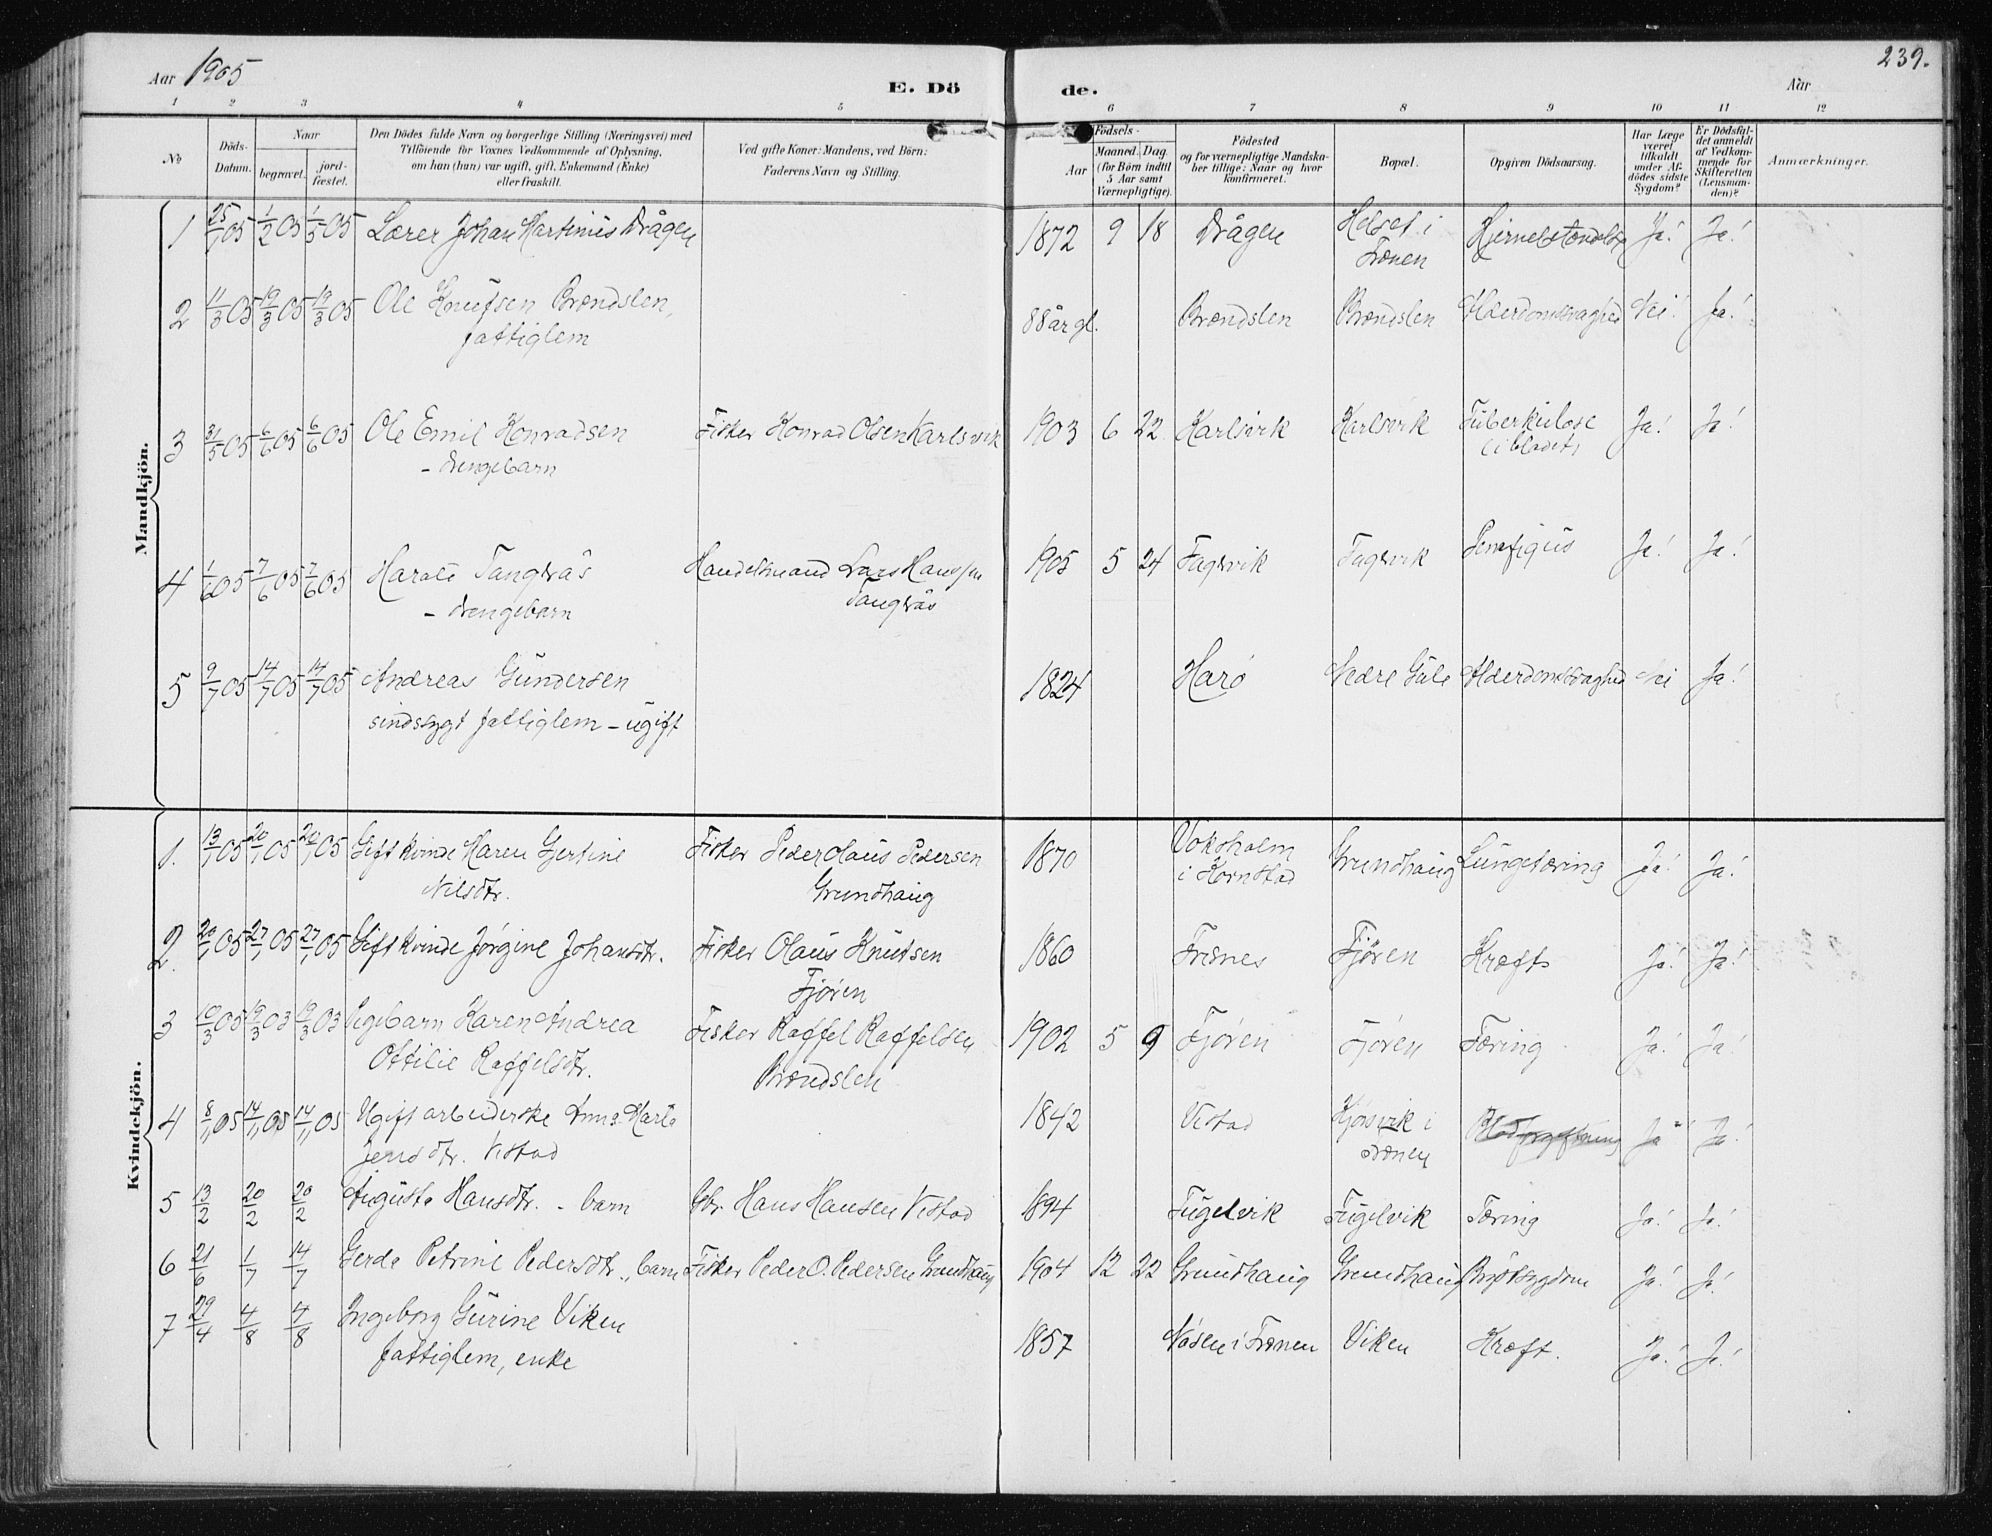 Aar 1905
E. Dö de.
Aar
239.
1 2 3 4 5 6 7 8 9 10 11 12
No
Döds-Datum.
Naar
begravet.
jord-fæstet.
Den Dödes fulde Navn og borgerlige Stilling (Næringsvei) med
Tilföiende for Voxnes Vedkommende af Oplysning,
om han (hun) var ugift, gift, Enkemand (Enke)
eller fraskilt.
Ved gifte Koner: Mandens, ved Börn:
Faderens Navn og Stilling.
Födsels-
Aar
Maaned. Dag.
(for Börn indtil
5 Aar samt
Værnepligtige).
Födested
og for værnepligtige Mandska-
ber tillige: Naar og hvor
konfirmeret.
Bopæl.
Opgiven Dödsaarsag.
Har Læge
været
tilkaldt
under Af-
dödes sidste
Sygdom?
Er Dödsfal-
det anmeldt
af Vedkom-
mende for
Skifteretten
(Lensman-
den)?
Anmærkninger.
Mandkjön.
1 25/1 05 1/2 05 1/5 05 Lærer Johan Martinus Drågen 1872 9 18 Drågen Helset i Hjernebetændelse Ja! Ja!
Frænen
2 11/3 05 19/3 05 19/3 05 Ole Knutsen Brendslen, 88 år gl. Brændslen Brændslen Alderdomssvaghed Nei! Ja!
fattiglem
3 31/5 05 6/6 05 6/6 05 Ole Emil Konradsen Fisker Konrad Olsen Karlsvik 1903 6 22 Karlsvik Karlsvik Tuberkulose Ja! Ja!
- drengebarn (i blodet)
4 1/6 05 7/6 05 7/6 05 Harald Tangerås Handelsmand Lars Hanssen 1905 5 24 Fagervik Fagervik Pemfigus Ja! Ja!
- drengebarn Tangerås
5 9/7 05 14/7 05 14/7 05 Andreas Gundersen 1824 Harö Nedre Gule Alderdomssvaghed Nei Ja!
sindssygt fattiglem - ugift
Kvindekjön.
1. 13/1 05 20/1 05 20/1 05 Gift kvinde Maren Gjertine Fisker Peder Olaus Pedersen 1870 Voksholm Grundhaug Lungetæring Ja! Ja!
Nilsdtr. Grundhaug i Kornstad
2. 20/1 05 27/1 05 27/1 05 Gift kvinde Jørgine Johansdtr. Fisker Olaus Knutsen 1860 Frænes Fjøren Kræft Ja! Ja!
Fjøren
3 10/3 05 19/3 03 19/3 03 Pigebarn Karen Andrea Fisker Raffel Raffelsen 1902 5 9 Fjøren Fjøren Tæring Ja! Ja!
Ottilie Raffelsdtr. Brændslen
4 8/1 05 14/1 05 14/1 05 Ugift arbeiderske Anna Marta 1842 Vistad Kjørsvik i Blodforgiftning Ja! Ja!
Jensdtr. Vistad Frænen
5 13/2 20/2 20/2 Augusta Hansdtr. - barn Gbr. Hans Hansen Vistad 1894 Fugelvik Fugelvik Tæring Ja! Ja!
6 21/6 1/7 14/7 Gerda Petrine Pedersdtr., barn Fisker Peder O. Pedersen Grundhaug 1904 12 22 Grundhaug Grundhaug Brystsygdom Ja! Ja!
7 29/4 4/8 4/8 Ingeborg Gurine Viken 1857 Nåsen i Frænen Viken Kræft. Ja! Ja!
fattiglem, enke